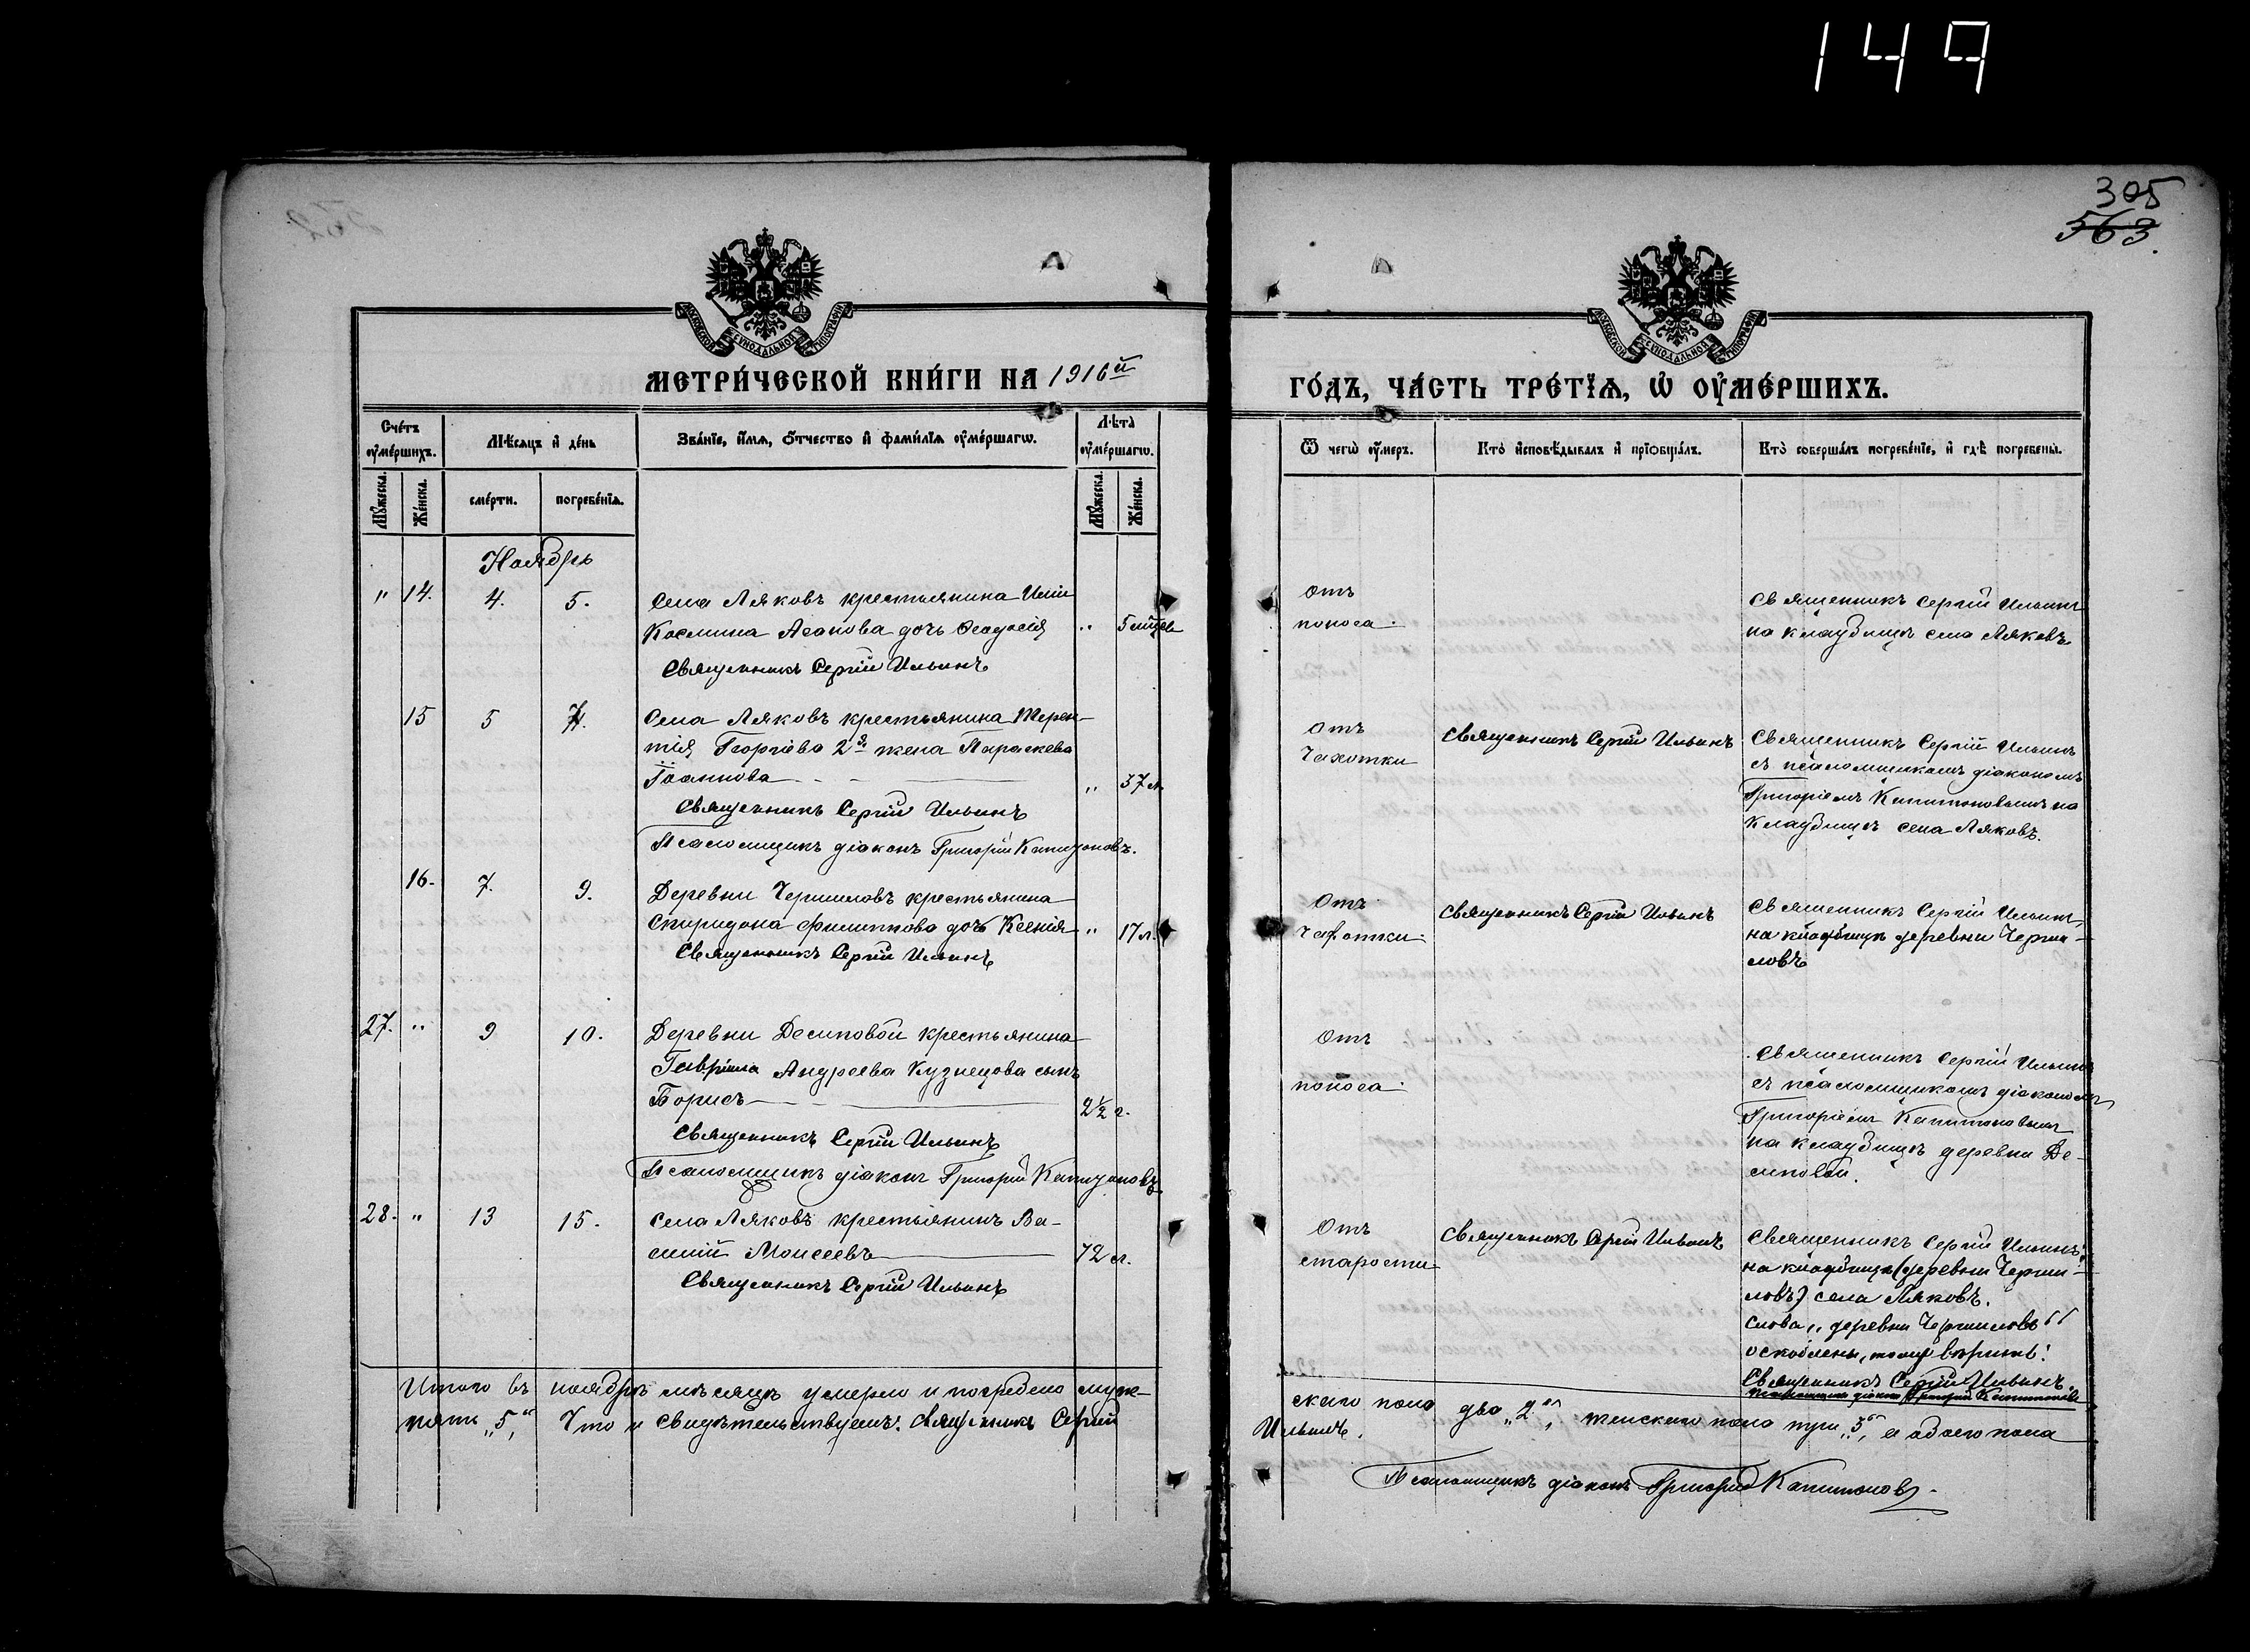 149
305
563.
МОСКОВСКОЙ СУНОДАЛЬНОЙ ТИПОГРАФІИ
МОСКОВСКОЙ СУНОДАЛЬНОЙ ТИПОГРАФІИ
МЕТРИ́ЧЕСКОЙ КНИ́ГИ НА 1916й
ГО́ДЪ, ЧА́СТЬ ТРЕ́ТЇѦ, Ѡ҆ ОУ҆МЕ́РШИХЪ.
Сче́тъ оу҆ме́ршихъ.
Мꙋ́жеска.
Же́нска.
Мѣ́сяцъ и҆ де́нь
сме́рти.
погребе́нїѧ.
Зва́нїе, и҆́мѧ, ѻ҆́тчество и҆ фами́лїѧ оу҆ме́ршагѡ.
Лѣта̀ оу҆ме́ршагѡ.
Мꙋ́жеска.
Же́нска.
Ѿ чегѡ̀ оу҆́меръ.
Кто̀ и҆сповѣ́дывалъ и҆ прїѻбща́лъ.
Кто̀ соверша́лъ погребе́нїе, и҆ гдѣ̀ погребены̀.
Ноябрь
" 14. 4. 5.
Села Ляковъ крестьянина Иліи
Космина Асанова дочь Ѳеодосія " 5 мцев
Священникъ Сергій Ильинъ
Отъ
поноса.
Священникъ Сергій Ильинъ
на кладбищѣ села Ляковъ
15 5 7.
Села Ляковъ крестьянина Терен-
тія Георгіева 2я жена Параскева
Іоаннова " 37 л.
Священникъ Сергій Ильинъ
Псаломщикъ діаконъ Григорій Капитоновъ.
Отъ
Чахотки
Священникъ Сергій Ильинъ
Священникъ Сергій Ильинъ
съ псаломщикомъ діакономъ
Григоріемъ Капитоновымъ на
кладбищѣ села Ляковъ.
16. 7. 9.
Деревни Чермиловъ крестьянина
Спиридона Филиппова дочь Ксенія " 17 л.
Священникъ Сергій Ильинъ
Отъ
чахотки.
Священникъ Сергій Ильинъ
Священникъ Сергій Ильинъ
на кладбищѣ деревни Черми-
ловъ
27. " 9 10.
Деревни Десиповой крестьянина
Гавріила Андреева Кузнецова сынъ
Борисъ 2½ г.
Священникъ Сергій Ильинъ
Псаломщикъ діаконъ Григорій Капитоновъ
Отъ
поноса.
Священникъ Сергій Ильинъ
съ псаломщикомъ діакономъ
Григоріемъ Капитоновымъ
на кладбищѣ деревни Де-
сиповой.
28. " 13 15.
Села Ляковъ крестьянинъ Ва-
силій Моисеевъ 72 л.
Священникъ Сергій Ильинъ
Отъ
старости
Священникъ Сергій Ильинъ
Священникъ Сергій Ильинъ
на кладбищѣ (деревни Черми-
ловъ) села Ляковъ.
Слова „деревни Чермиловъ"
оскоблены, тому вѣрить:
Священникъ Сергій Ильинъ
Псаломщикъ діаконъ Григорій Капитоновъ
Итого въ ноябрѣ мѣсяцѣ умерло и погребено муж-
скаго пола два „2", женскаго пола три „3", а обоего пола
пять „5", Что и свидѣтельствуемъ: Священникъ Сергій
Ильинъ.
Псаломщикъ діаконъ Григорій Капитоновъ.